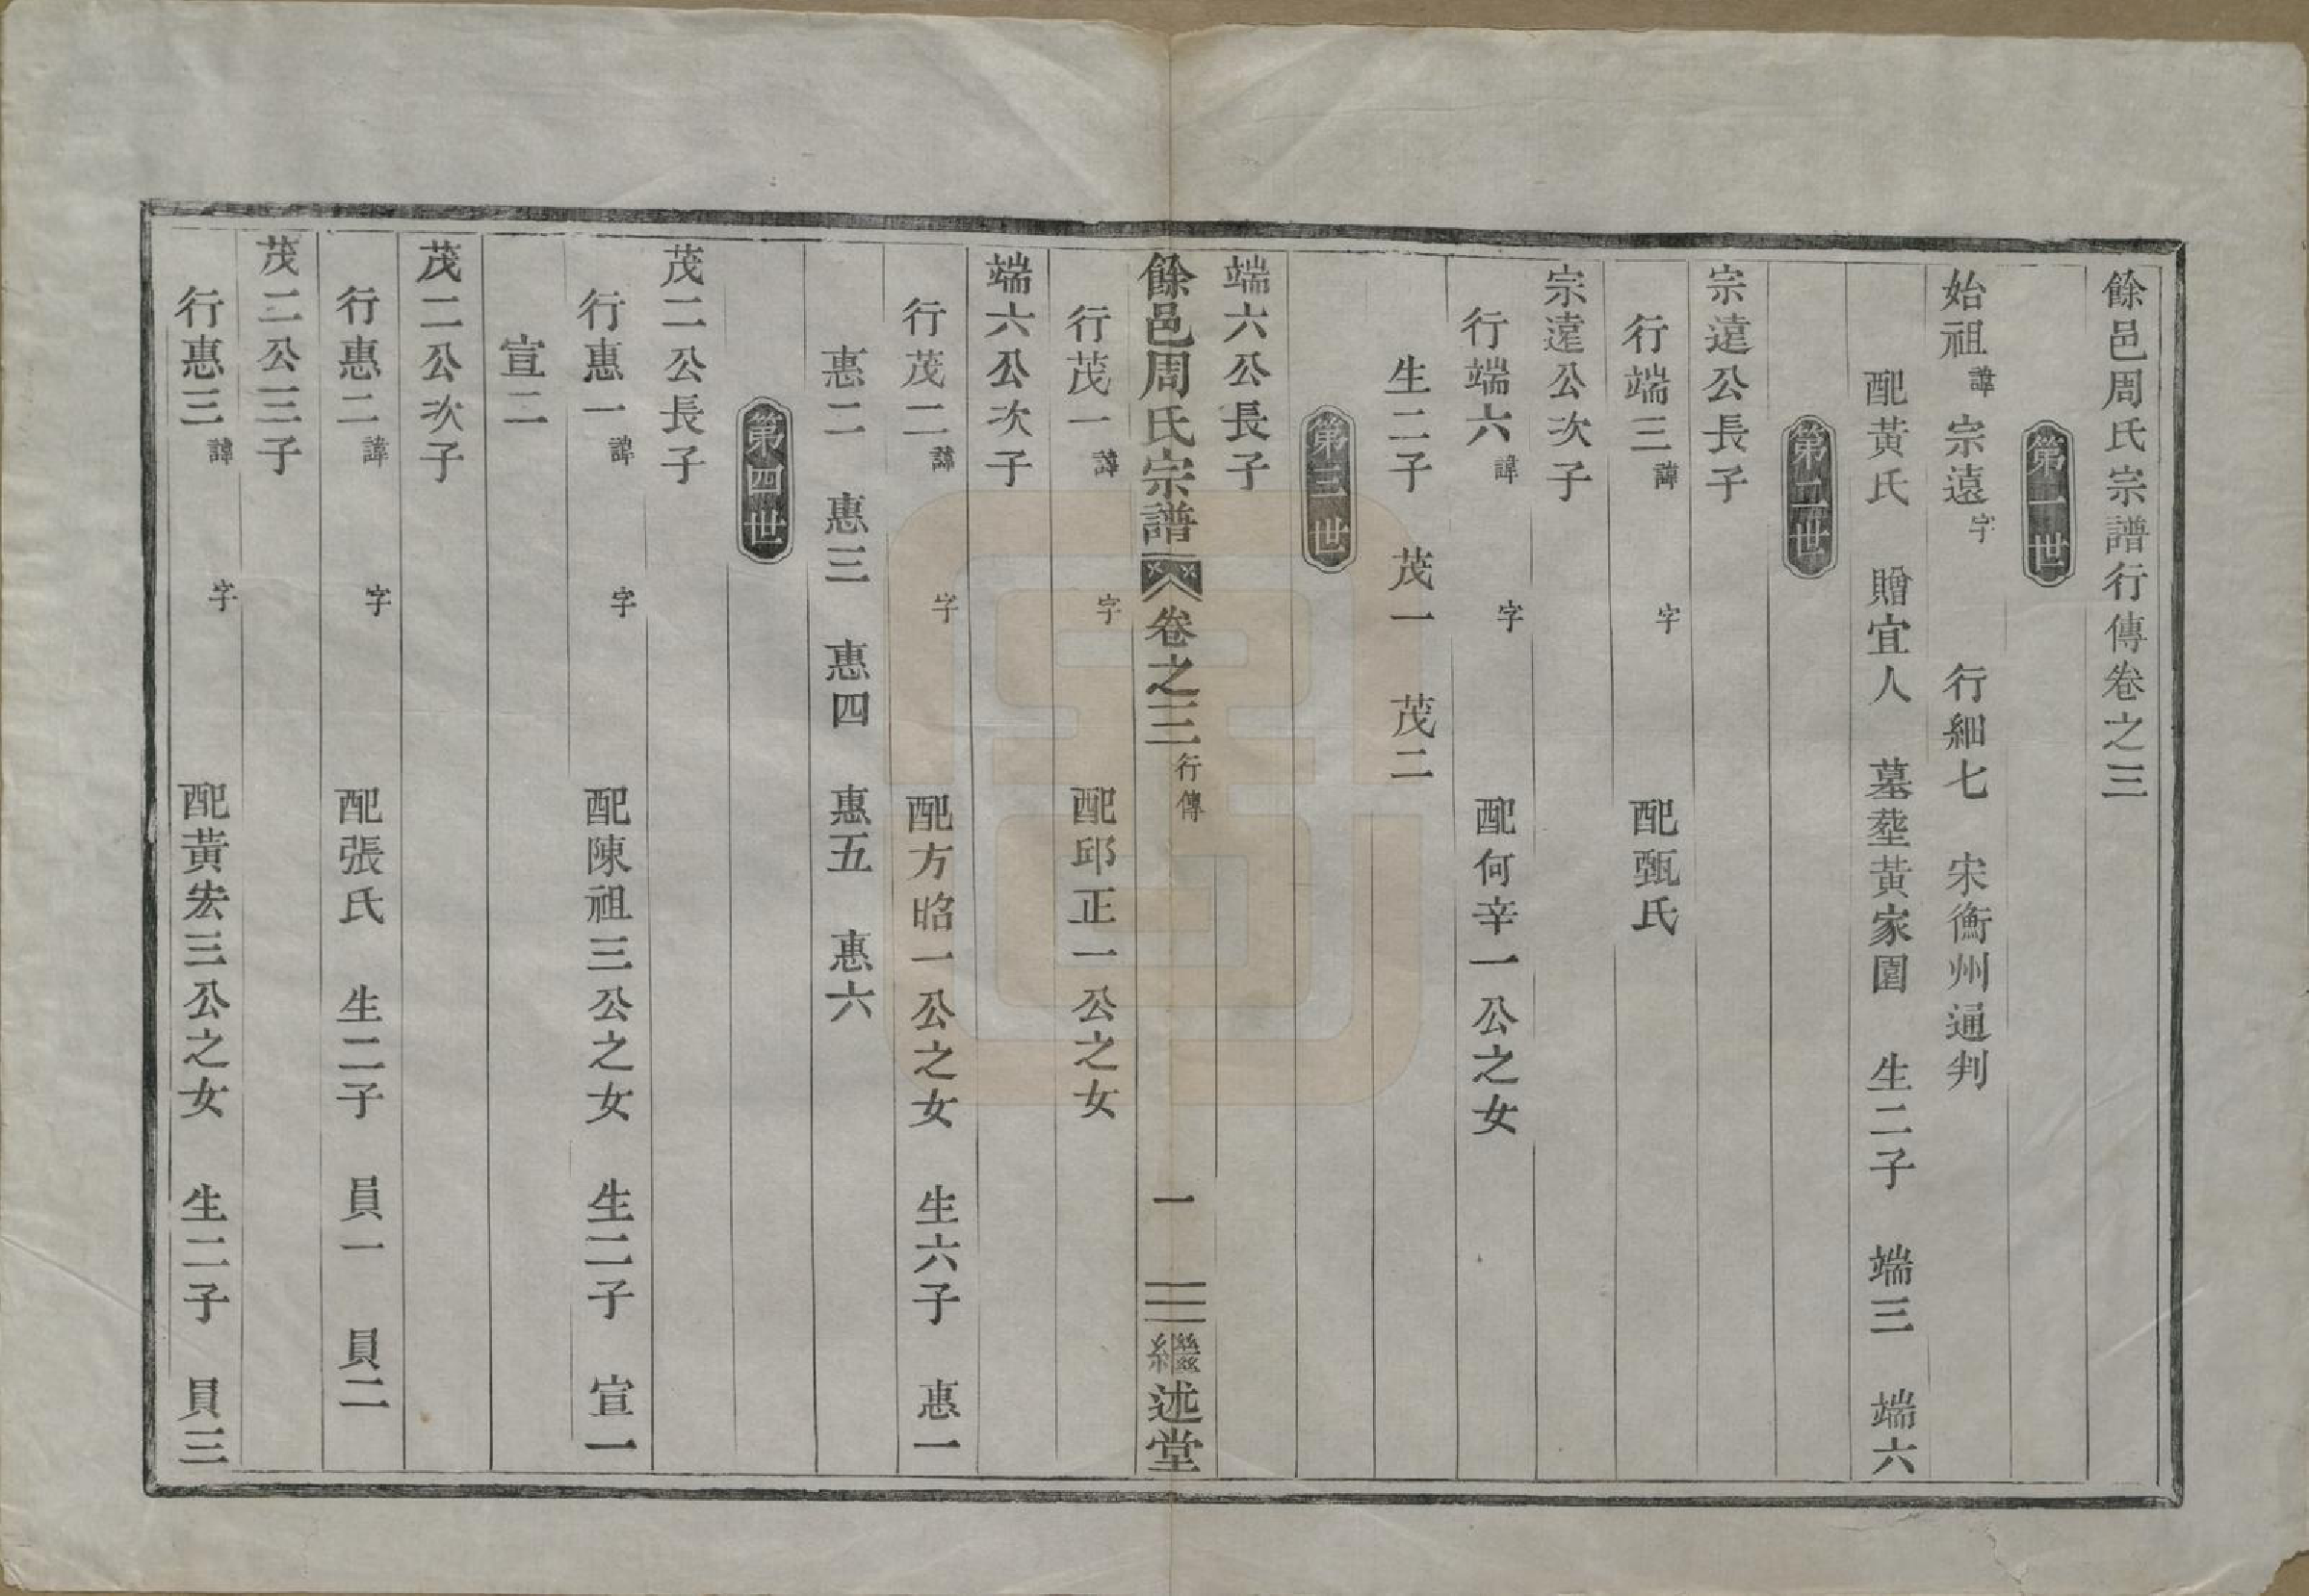 餘邑周氏宗譜行傳卷之三
第一世
始祖諱宗遠字 行細七 宋衡州通判
配黃氏 贈宜人 墓塟黃家園 生二子 端三 端六
第二世
宗遠公長子
行端三諱 字 配甄氏
宗遠公次子
行端六諱 字 配何辛一公之女
生二子 茂一 茂二
第三世
端六公長子
餘邑周氏宗譜 卷之三 行傳 一 繼述堂
行茂一諱 字 配邱正一公之女
端六公次子
行茂二諱 字 配方昭一公之女 生六子 惠一
惠二 惠三 惠四 惠五 惠六
第四世
茂二公長子
行惠一諱 字 配陳祖三公之女 生二子 宣一
宣二
茂二公次子
行惠二諱 字 配張氏 生二子 員一 員二
茂二公三子
行惠三諱 字 配黃宏三公之女 生二子 員三